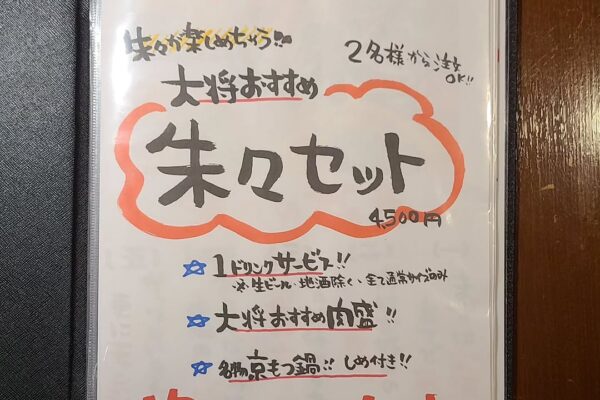 朱々が楽しめちゃう!!
2名様から注文OK!!
大将おすすめ
朱々セット
4,500円
☆1ドリンクサービス!!
※生ビール・地酒除く、全て通常サイズのみ
☆大将おすすめ肉盛!!
☆名物京もつ鍋!! しめ付き!!